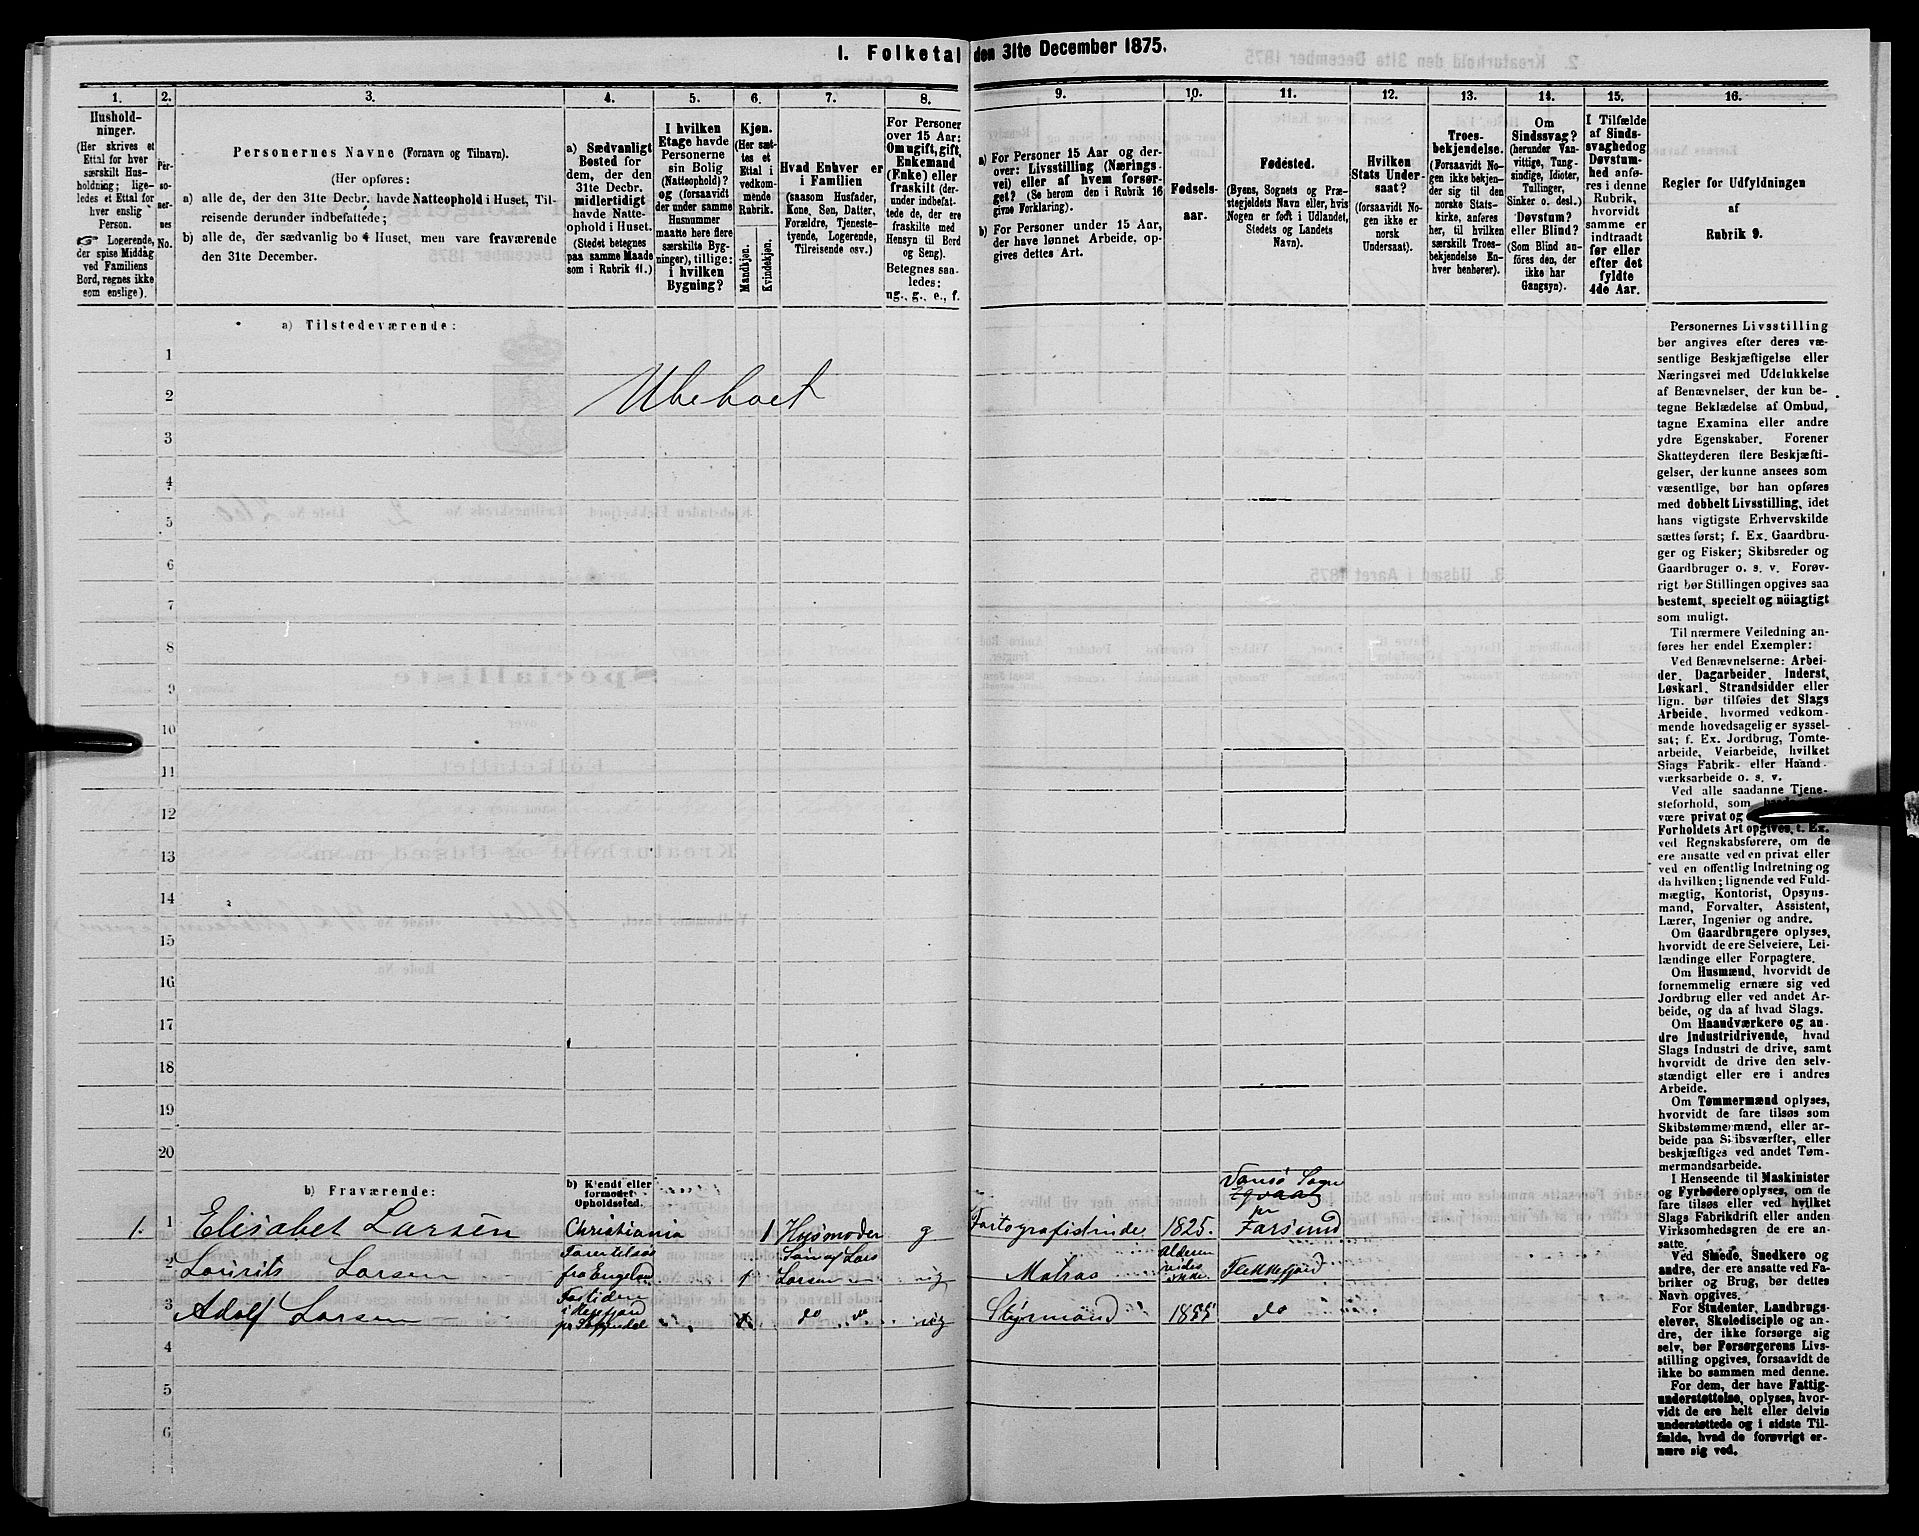 I. Folketal den 31te December 1875.
1.
2.
3.
4.
5.
6.
7.
8.
9.
10.
11.
12.
13.
14.
15.
16.
Hushold-
ninger.
(Her skrives et
Ettal for hver
særskilt Hus-
holdning; lige-
ledes et Ettal for
hver enslig
Person.
☞ Logerende,
der spise Middag
ved Familiens
Bord, regnes ikke
som enslige).
Per-
so-
ner-
nes
No.
Personernes Navne (Fornavn og Tilnavn).
(Her opføres:
a) alle de, der den 31te Decbr. havde Natteophold i Huset, Til-
reisende derunder indbefattede;
b) alle de, der sædvanlig bo i Huset, men vare fraværende
den 31te December.
a) Sædvanligt
Bosted for
dem, der den
31te Decbr.
midlertidigt
havde Natte-
ophold i Huset.
(Stedet betegnes
paa samme Maade
som i Rubrik 11.)
I hvilken
Etage havde
Personerne
sin Bolig
(Natteophold)?
og (forsaavidt
der under samme
Husnummer
maatte here flere
særskilte Byg-
ninger), tillige:
i hvilken
Bygning?
Kjøn.
(Her sæt-
tes et
Ettal i
vedkom-
mende
Rubrik.
Mandkjøn.
Kvindekjøn.
Hvad Enhver er
i Familien
(saasom Husfader,
Kone, Søn, Datter,
Forældre, Tjeneste-
tyende, Logerende,
Tilreisende osv.)
For Personer
over 15 Aar:
Om ugift, gift,
Enkemand
(Enke) eller
fraskilt (der-
under indbefat-
tede de, der ere
fraskilte med
Hensyn til Bord
og Seng).
Betegnes saa-
ledes:
ug., g., e., f.
a) For Personer 15 Aar og der-
over: Livsstilling (Nærings-
vei) eller af hvem forsør-
get? (Se herom den i Rubrik 16
givne Forklaring).
b) For Personer under 15 Aar,
der have lønnet Arbeide, op-
gives dettes Art.
Fødsels-
aar.
Fødested.
(Byens, Sognets og Præ-
stegjeldets Navn eller, hvis
Nogen er født i Udlandet,
Stedets og Landets
Navn).
Hvilken
Stats Under-
saat?
(forsaavidt No-
gen ikke er
norsk
Undersaat).
Troes-
bekjendelse.
(Forsaavidt No-
gen ikke bekjen-
der sig til den
norske Stats-
kirke, anføres
her, til hvilken
særskilt Troes-
bekjendelse En-
hver henhører).
Om
Sindssvag?
(herunder Van-
vittige, Tung-
sindige, Idioter,
Tullinger,
Sinker o. desl.)
Døvstum?
eller Blind?
(Som Blind an-
føres den, der
ikke har
Gangsyn).
I Tilfælde
af Sinds-
svaghed og
Døvstum-
hed anfø-
res i denne
Rubrik,
hvorvidt
samme er
indtraadt
før eller
efter det
fyldte
4de Aar.
Regler for Udfyldningen
af
Rubrik 9.
a) Tilstedeværende:
1
Ubeboet
2
3
4
5
6
7
8
9
10
11
12
13
14
15
16
17
18
19
20
Personernes Livsstilling
bør angives efter deres væ-
sentlige Beskjæftigelse eller
Næringsvei med Udelukkelse
af Benævnelser, der kun be-
tegne Beklædelse af Ombud,
tagne Examina eller andre
ydre Egenskaber. Forener
Skatteyderen flere Beskjæfti-
gelser, der kunne ansees som
væsentlige, bør han opføres
med dobbelt Livsstilling, idet
hans vigtigste Erhvervskilde
sættes først; f. Ex. Gaardbru-
ger og Fisker; Skibsreder og
Gaardbruger o. s. v. Forøv-
rigt bør Stillingen opgives saa
bestemt, specielt og nöiagtigt
som muligt.
Til nærmere Veiledning an-
føres her endel Exempler:
Ved Benævnelserne: Arbei-
der, Dagarbeider, Inderst,
Løskarl, Strandsidder eller
lign. bør tilføies det Slags
Arbeide, hvormed vedkom-
mende hovedsagelig er syssel-
sat; f. Ex. Jordbrug, Tomte-
arbeide, Veiarbeide, hvilket
Slags Fabrik- eller Haand-
værksarbeide o. s. v.
Ved alle saadanne Tjene-
steforhold, som
være privat og
Forholdets Art opgives, t. Ex.
ved Regnskabsførere, om de
ere ansatte ved en privat eller
ved en offentlig Indretning og
da hvilken; lignende ved Fuld-
mægtig, Kontorist, Opsyns-
mand, Forvalter, Assistent,
Lærer, Ingeniør og andre.
Om Gaardbrugere oplyses,
hvorvidt de ere Selveiere, Lei-
lændinge eller Forpagtere.
Om Husmænd, hvorvidt de
fornemmelig ernære sig ved
Jordbrug eller ved andet Ar-
beide, og da af hvad Slags.
Om Haandværkere og an-
dre Industridrivende, hvad
Slags Industri de drive, samt
hvorvidt de drive den selv-
stændigt eller ere i andres
Arbeide.
Om Tømmermænd oplyses,
hvorvidt de fare tilsøs som
Skibstømmermænd, eller ar-
beide paa Skibsværfter, eller
beskjæftiges ved andet Tøm-
mermandsarbeide.
I Henseende til Maskinister
og Fyrbødere oplyses, om de
fare tilsøs eller ved hvilket
Slags Fabrikdrift eller anden
Virksomhedsgren de ere an-
satte.
Ved Smede, Snedkere og
andre, der ere ansatte ved Fa-
briker og Brug, bør dettes
Navn opgives.
For Studenter, Landbrugs-
elever, Skoledisciple og an-
dre, der ikke forsørge sig
selv, bør Forsørgerens Livs-
stilling opgives, forsaavidt de
ikke bo sammen med denne.
For dem, der have Fattig-
understøttelse, oplyses, hvor-
vidt de ere helt eller delvis
understøttede og i sidste Til-
fælde, hvad de forøvrigt er-
nære sig ved.
b) Fraværende:
b) Kjendt eller
formodet
Opholdssted.
1. 1 Elisabet Larsen Christiania 1 Husmoder g 1825. Farsund
2 Lourits Larsen Farer tilsøs fra England 1 Søn af Lars Larsen ug Matros Alderen vides ikke. Flekkefjord
3 Adolf Larsen For tiden i 1 do do ug Styrmand 1855 do
4
5
6